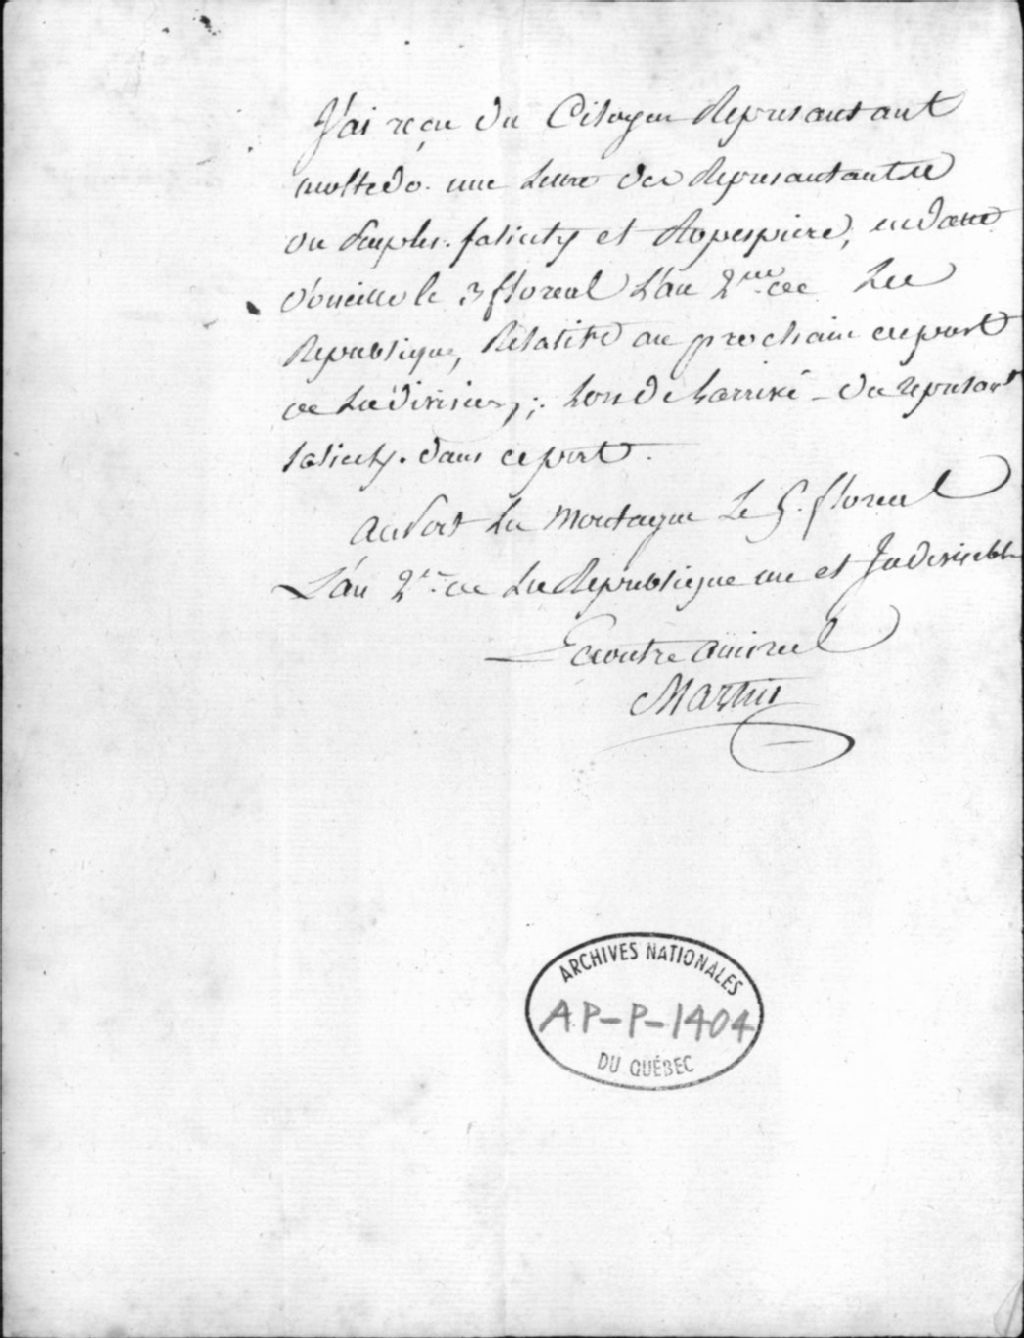 J'ai reçu du Citoyen Represantant
moltedo. une Lettre des Represantantse
du peuple. salicety et Robespiere, en datte
d'oneille le 3 floreal L'an 2me de La
Republique, Relative au prochain
de La division, ; Lors de Larrivé du represant
salicety. dans ce port.
Au Port La Montagne Le 5. floreal
L'an 2e de La Republique une et Indivisible
Le contre amiral
Martin
ARCHIVES NATIONALES
AP-P-1404
DU QUÉBEC